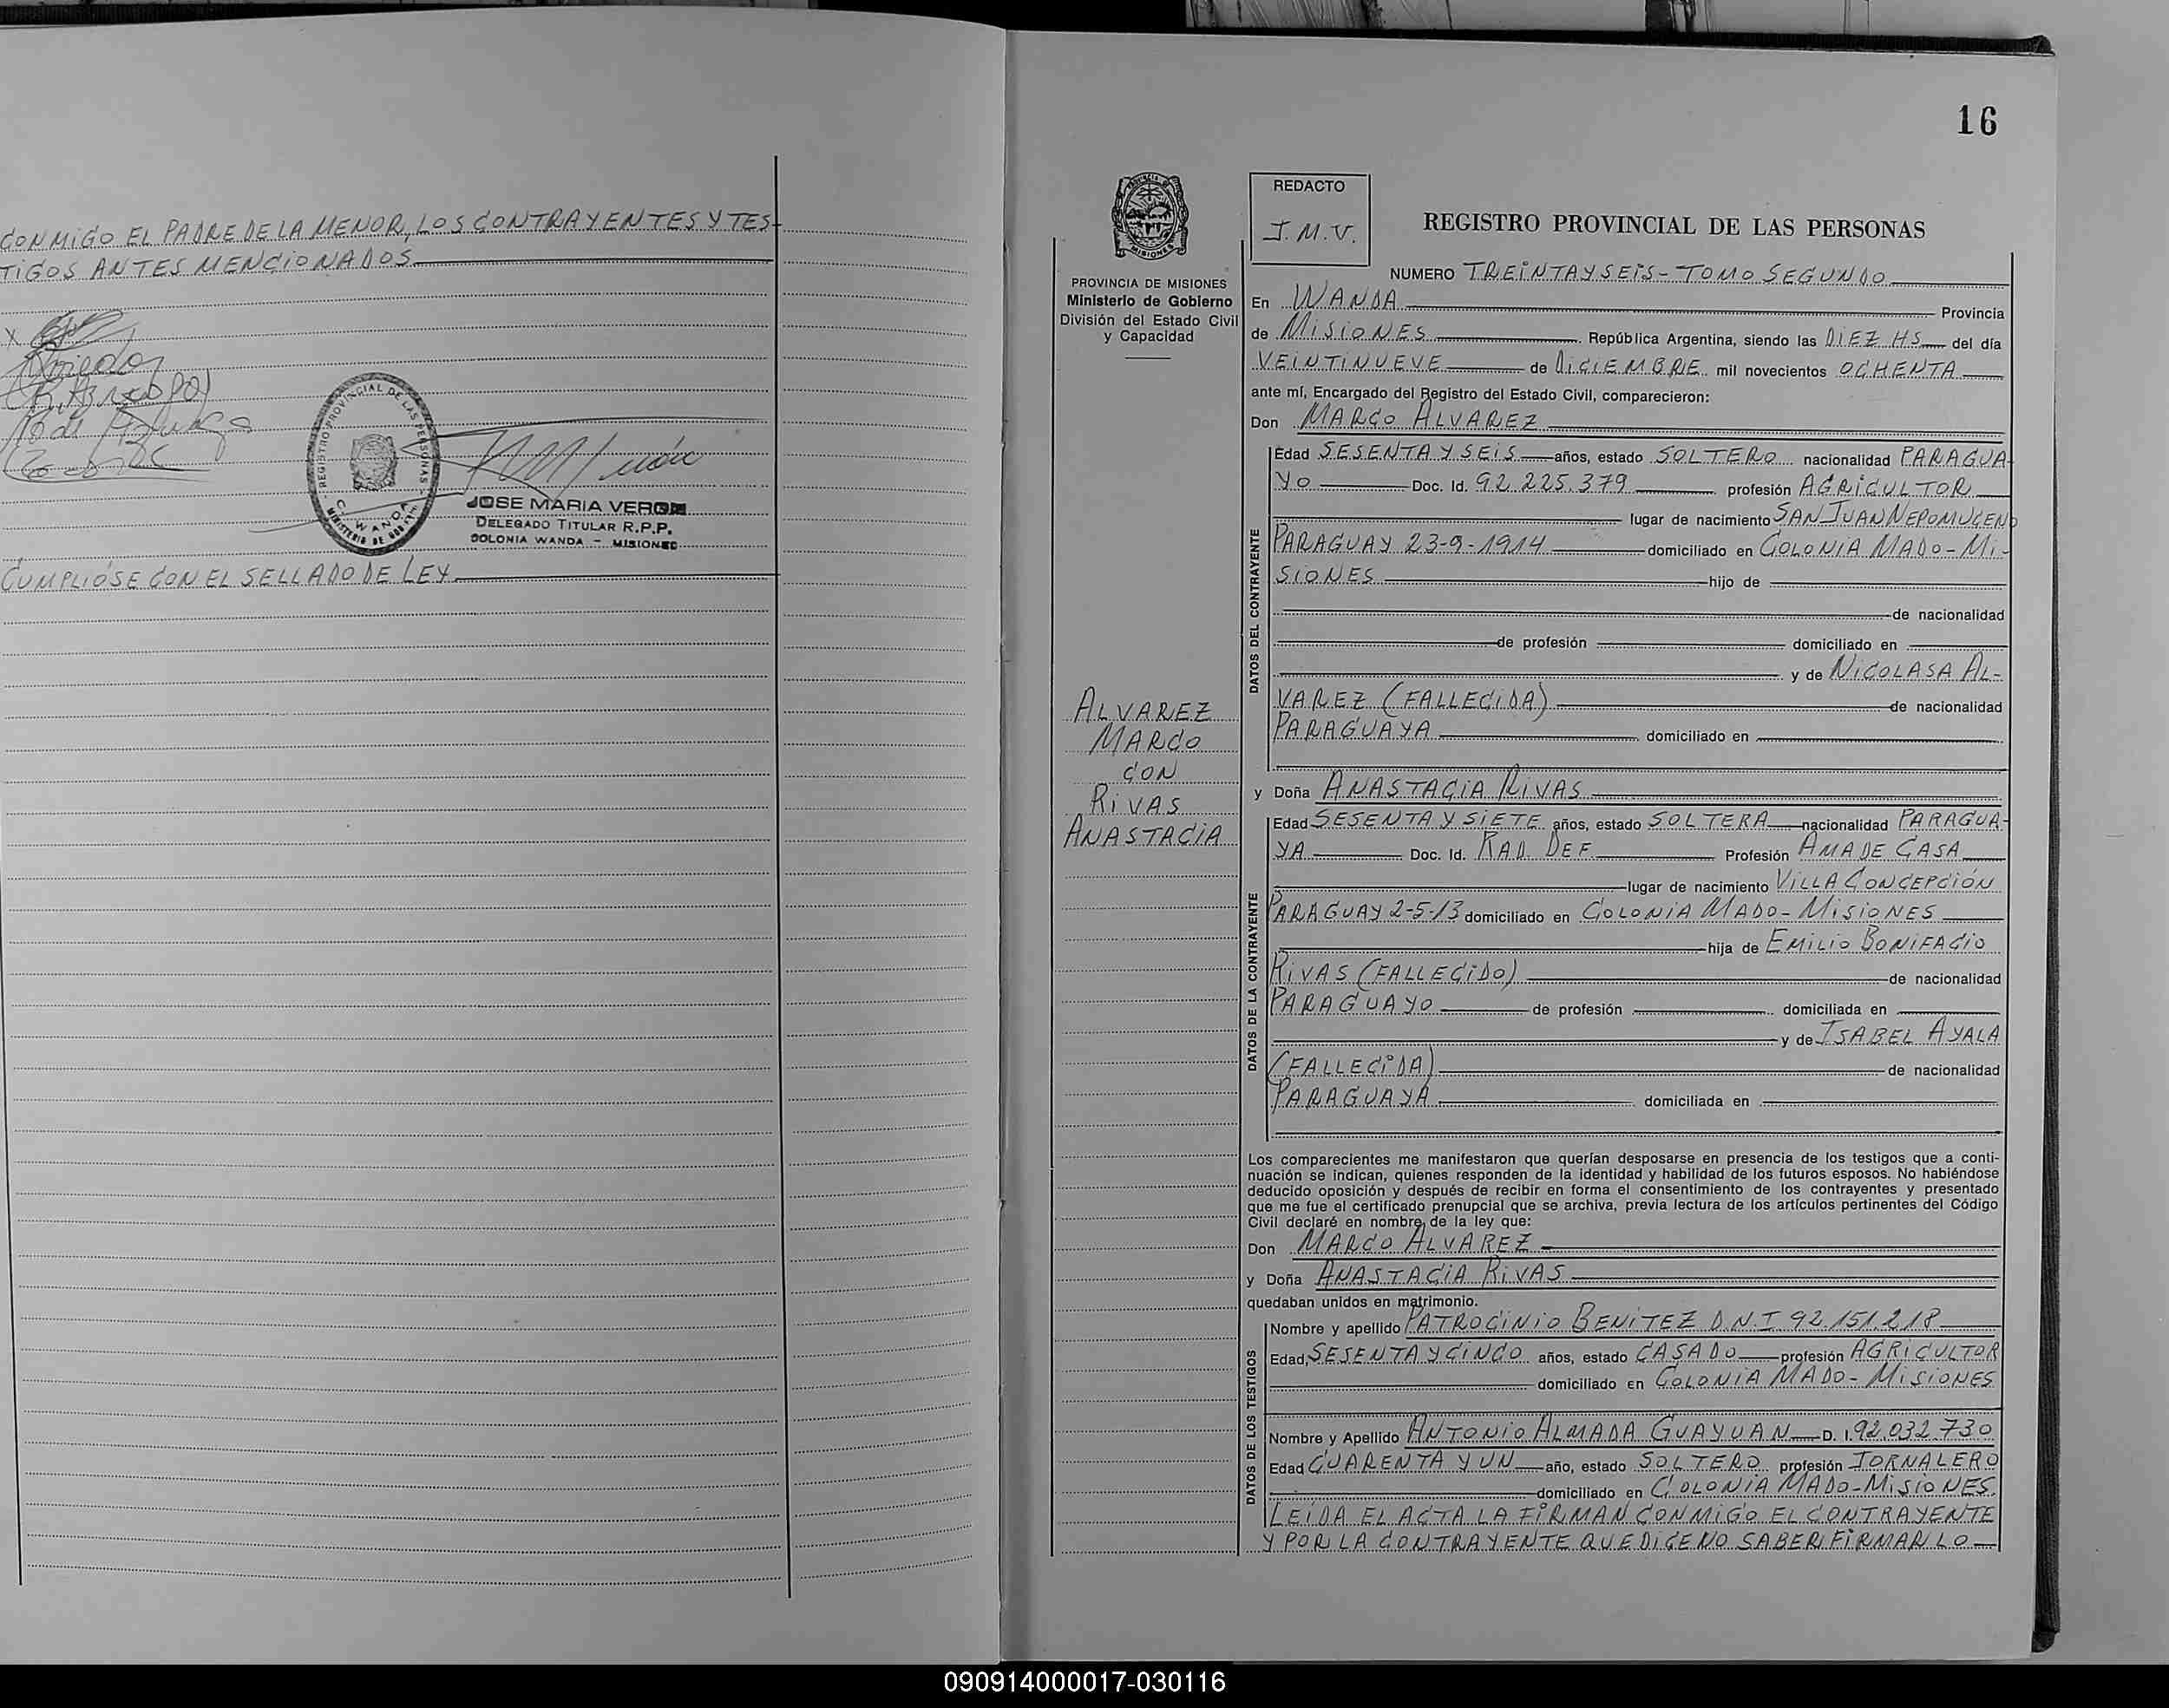 CONMIGO EL PADRE DE LA MENOR, LOS CONTRAYENTES Y TES-
TIGOS ANTES MENCIONADOS
X
REGISTRO PROVINCIAL DE LAS PERSONAS
C. WANDA
MINISTERIO DE
JOSE MARIA VERON
DELEGADO TITULAR R.P.P.
COLONIA WANDA - MISIONES
CUMPLIÓSE CON EL SELLADO DE LEY
16
REDACTO
J.M.V.
MISIONES
PROVINCIA DE MISIONES
Ministerio de Gobierno
División del Estado Civil
y Capacidad
ALVAREZ
MARCO
CON
RIVAS
ANASTACIA
REGISTRO PROVINCIAL DE LAS PERSONAS
NUMERO TREINTA Y SEIS - TOMO SEGUNDO
En WANDA Provincia
de MISIONES. República Argentina, siendo las DIEZ HS del día
VEINTINUEVE de DICIEMBRE mil novecientos OCHENTA
ante mí, Encargado del Registro del Estado Civil, comparecieron:
Don MARCO ALVAREZ
DATOS DEL CONTRAYENTE
Edad SESENTA Y SEIS años, estado SOLTERO nacionalidad PARAGUA-
YO Doc. Id. 92.225.379 profesión AGRICULTOR
lugar de nacimiento SAN JUAN NEPOMUCENO
PARAGUAY 23-9-1914 domiciliado en COLONIA MADO - MI-
SIONES hijo de
de nacionalidad
de profesión domiciliado en
y de NICOLASA AL-
VAREZ (FALLECIDA) de nacionalidad
PARAGUAYA domiciliado en
y Doña ANASTACIA RIVAS
DATOS DE LA CONTRAYENTE
Edad SESENTA Y SIETE años, estado SOLTERA nacionalidad PARAGUA-
YA Doc. Id. RAD. DEF. Profesión AMA DE CASA
lugar de nacimiento VILLA CONCEPCIÓN
PARAGUAY 2-5-13 domiciliado en COLONIA MADO - MISIONES
hija de EMILIO BONIFACIO
RIVAS (FALLECIDO) de nacionalidad
PARAGUAYO de profesión domiciliada en
y de ISABEL AYALA
(FALLECIDA) de nacionalidad
PARAGUAYA domiciliada en
Los comparecientes me manifestaron que querían desposarse en presencia de los testigos que a conti-
nuación se indican, quienes responden de la identidad y habilidad de los futuros esposos. No habiéndose
deducido oposición y después de recibir en forma el consentimiento de los contrayentes y presentado
que me fue el certificado prenupcial que se archiva, previa lectura de los artículos pertinentes del Código
Civil declaré en nombre de la ley que:
Don MARCO ALVAREZ
y Doña ANASTACIA RIVAS
quedaban unidos en matrimonio.
DATOS DE LOS TESTIGOS
Nombre y apellido PATROCINIO BENITEZ D.N.I 92.151.218
Edad, SESENTA Y CINCO años, estado CASADO profesión AGRICULTOR
domiciliado en COLONIA MADO - MISIONES
Nombre y Apellido ANTONIO ALMADA GUAYUAN D. I. 92.032.730
Edad CUARENTA Y UN año, estado SOLTERO profesión JORNALERO
domiciliado en COLONIA MADO - MISIONES.
LEIDA EL ACTA LA FIRMAN CONMIGO EL CONTRAYENTE
Y POR LA CONTRAYENTE QUE DICE NO SABER FIRMAR LO
090914000017-030116